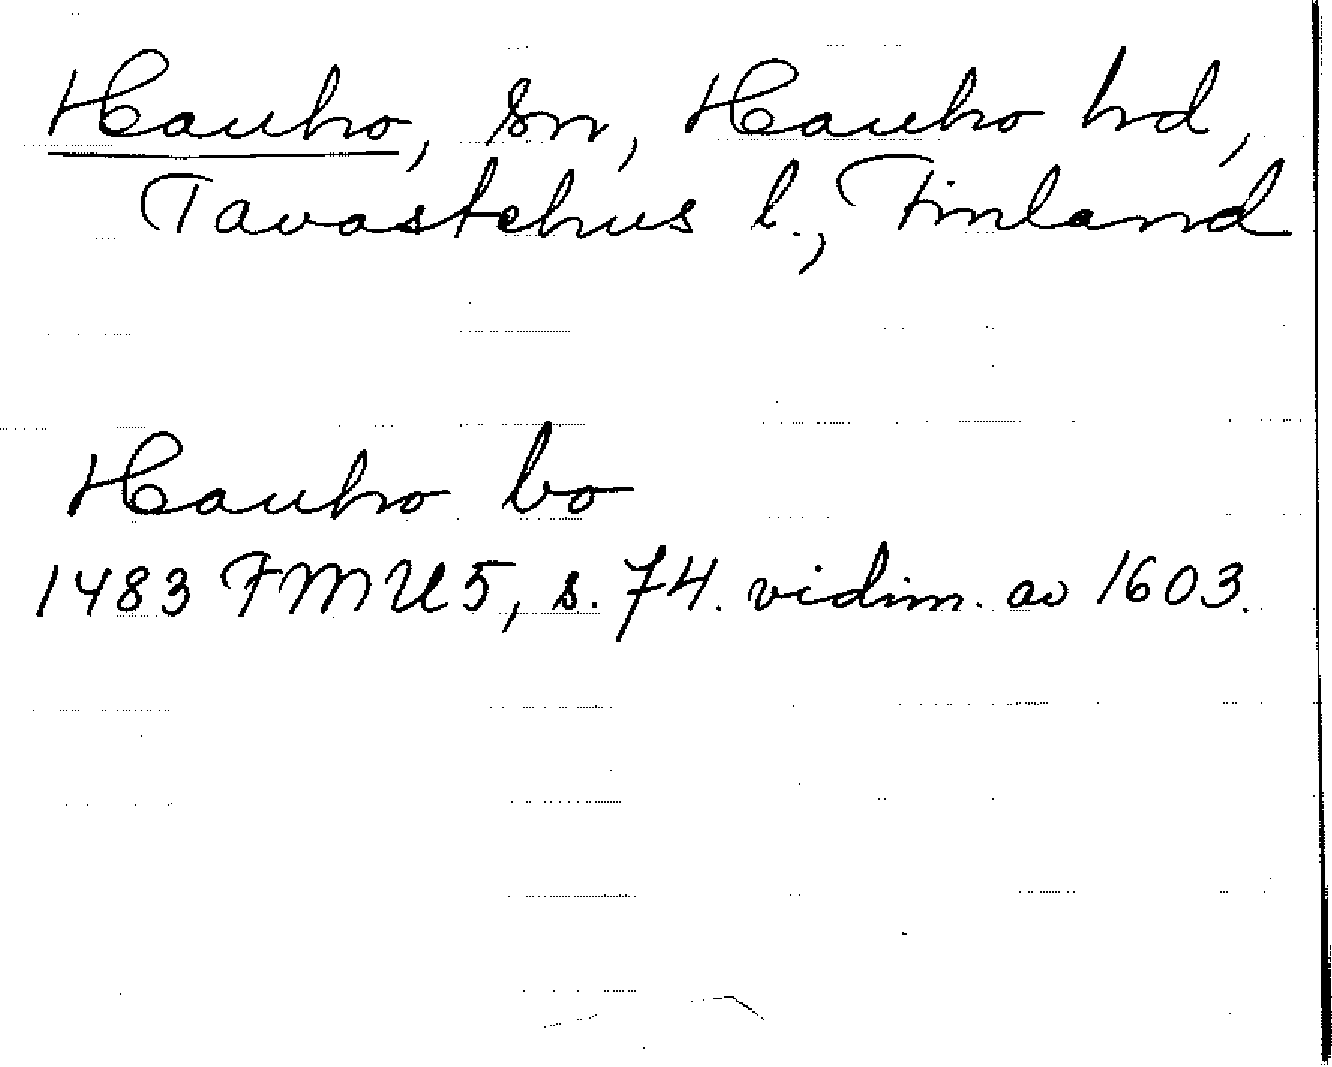 Hauho, sn, Hauho hd,
Tavastehus l., Finland
Hauho bo
1483 FMU 5, s. 74. vidim. av 1603.